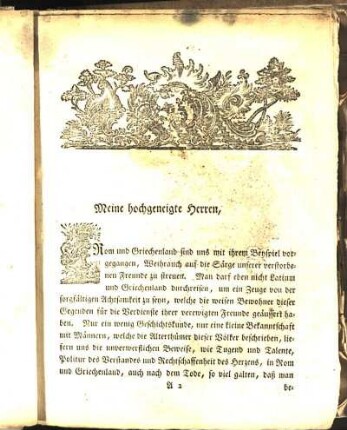 Meine hochgeneigte Herren,
Rom und Griechenland sind uns mit ihrem Beyspiel vor-
gegangen, Weihrauch auf die Särge unserer verstorbe-
nen Freunde zu streuen. Man darf eben nicht Latium
und Griechenland durchreisen, um ein Zeuge von der
sorgfältigen Achtsamkeit zu seyn, welche die weisen Bewohner dieser
Gegenden für die Verdienste ihrer verewigten Freunde geäussert ha-
ben. Nur ein wenig Geschichtskunde, nur eine kleine Bekanntschaft
mit Männern, welche die Alterthümer dieser Völker beschrieben, lie-
fern uns die unverwerflichen Beweise, wie Tugend und Talente,
Politur des Verstandes und Rechtschaffenheit des Herzens, in Rom
und Griechenland, auch nach dem Tode, so viel galten, daß man
A 2 be-